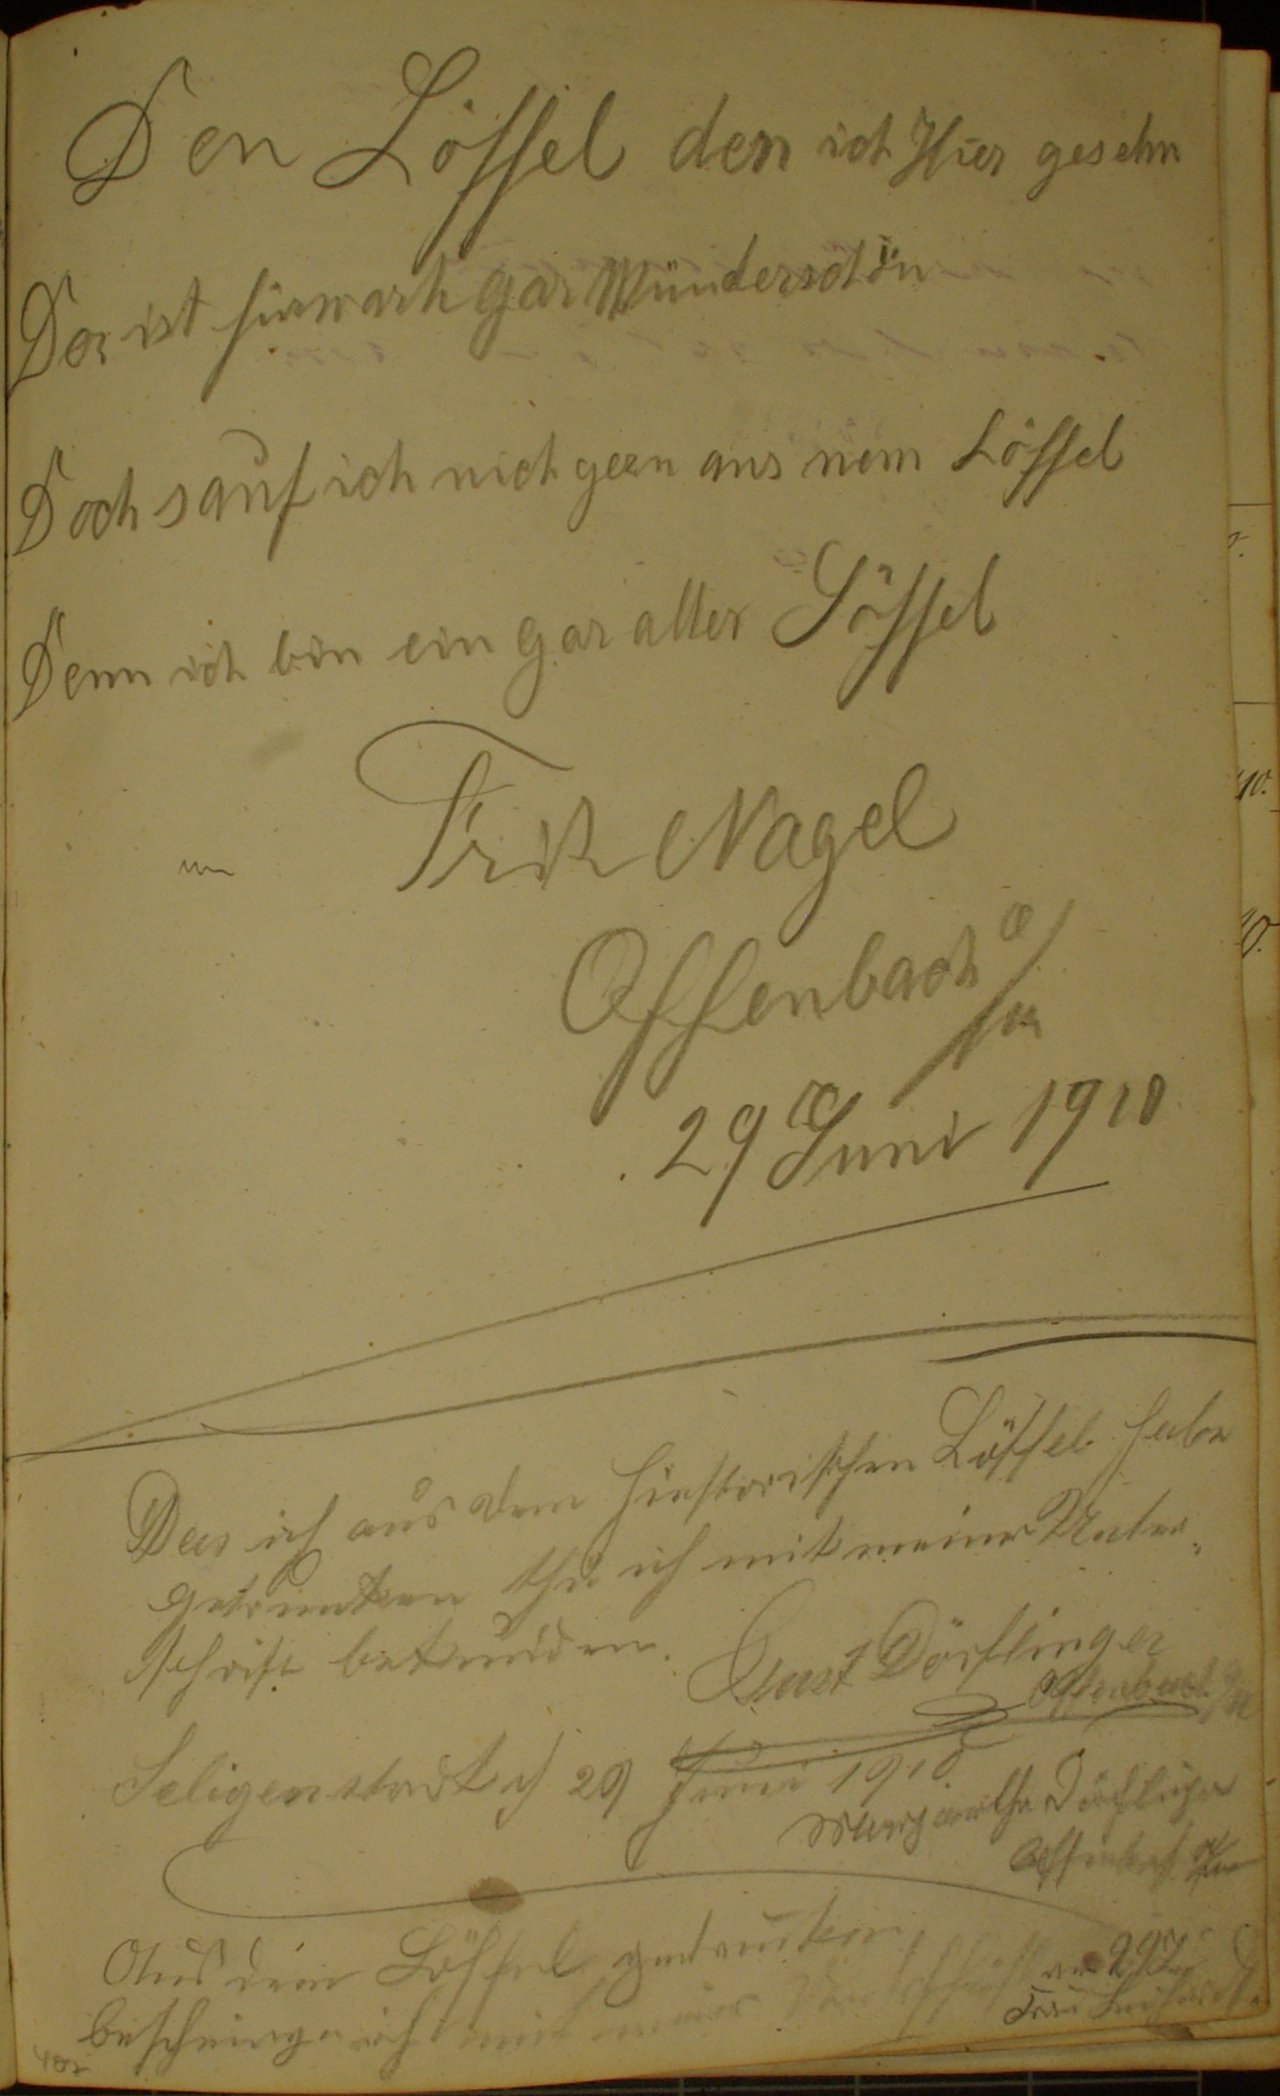 Den Löffel den ich Hier gesehn
Der ist fürwarh gar Wünderschön
Doch sauf ich nich gern aus nem Löffel
Denn ich bin ein gar alter Söffel
Fritz Nagel
Offenbach a/M
29 Juni 1910
Das ich aus dem historischen Löffel habe
getrunken thu ich mit meiner Unter-
schrift bekunden.
Gust Dörflinger
Offenbach a/M
Seligenstadt d 29 Juni 1910.
Margarethe Dörflinger
Offenbach
Aus dem Löffel getrunken
bescheinige ich mit meiner
Frau